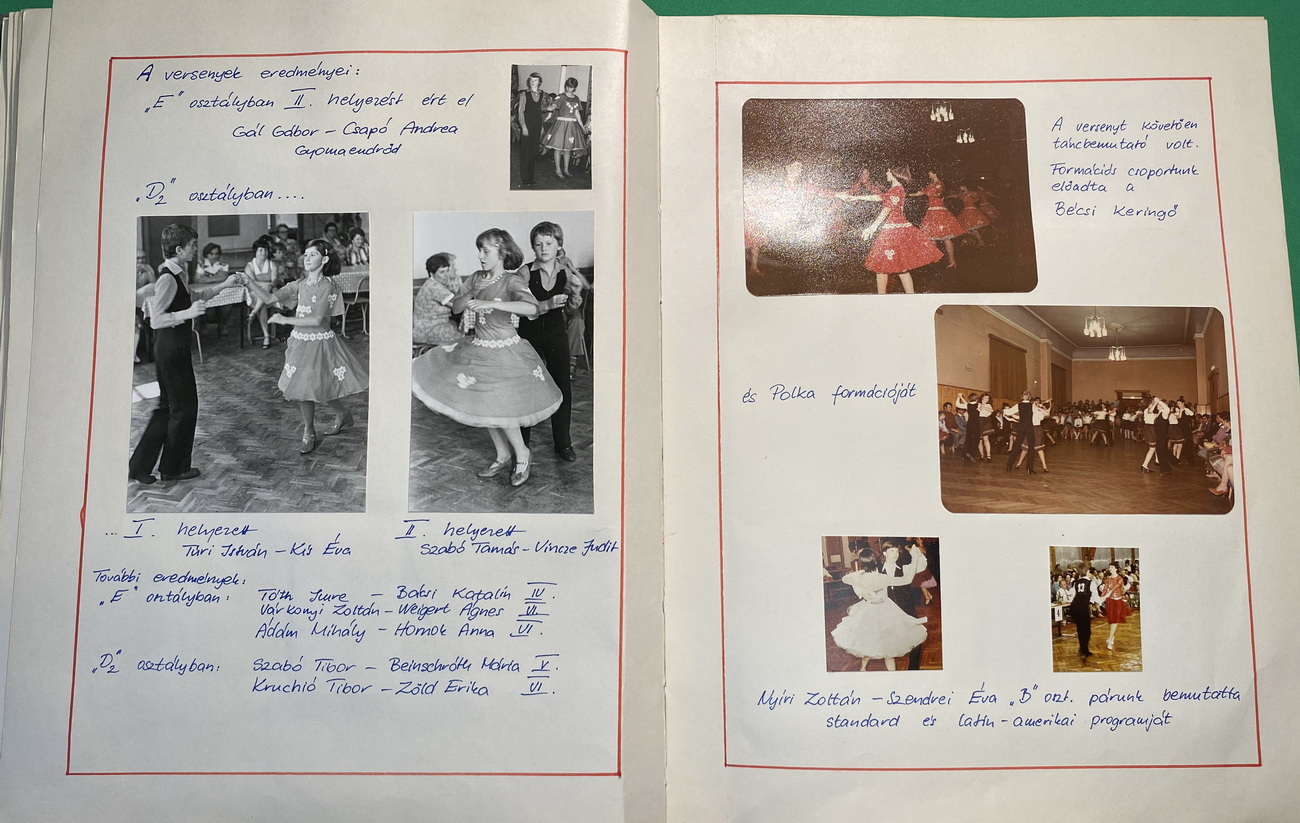 A versenyek eredményei:
„E" osztályban II. helyezést ért el
Gál Gábor – Csapó Andrea
Gyomaendrőd
„D2" osztályban ....
... I. helyezett
Túri István – Kis Éva
II. helyezett
Szabó Tamás – Vincze Judit
További eredmények:
„E" osztályban: Tóth Imre – Balási Katalin IV.
Várkonyi Zoltán – Weigert Ágnes VI.
Ádám Mihály – Hornok Anna VI.
„D2" osztályban: Szabó Tibor – Beinschróth Mária V.
Kruchió Tibor – Zöld Erika VI.
A versenyt követően
táncbemutató volt.
Formációs csoportunk
előadta a
Bécsi Keringő
és Polka formációját
13
Nyíri Zoltán – Szendrei Éva „B" oszt. párunk bemutatta
standard és latin-amerikai programját